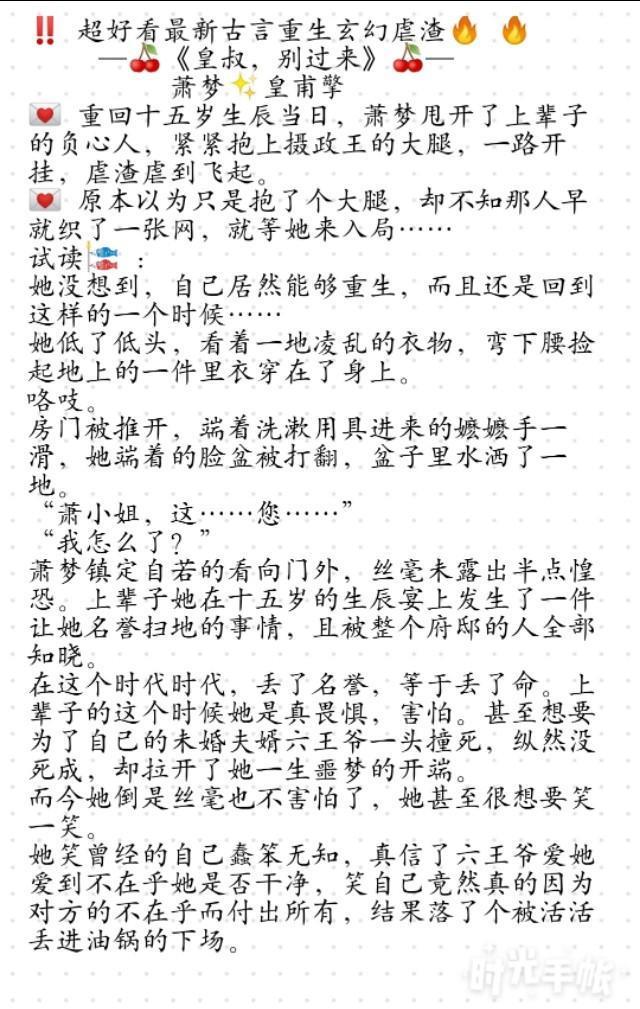 ‼️ 超好看最新古言重生玄幻虐渣🔥 🔥
—🍒《皇叔，别过来》🍒—
萧梦✨皇甫擎
💌 重回十五岁生辰当日，萧梦甩开了上辈子
的负心人，紧紧抱上摄政王的大腿，一路开
挂，虐渣虐到飞起。
💌 原本以为只是抱了个大腿，却不知那人早
就织了一张网，就等她来入局……
试读🎏：
她没想到，自己居然能够重生，而且还是回到
这样的一个时候……
她低了低头，看着一地凌乱的衣物，弯下腰捡
起地上的一件里衣穿在了身上。
咯吱。
房门被推开，端着洗漱用具进来的嬷嬷手一
滑，她端着的脸盆被打翻，盆子里水洒了一
地。
“萧小姐，这……您……”
“我怎么了？”
萧梦镇定自若的看向门外，丝毫未露出半点惶
恐。上辈子她在十五岁的生辰宴上发生了一件
让她名誉扫地的事情，且被整个府邸的人全部
知晓。
在这个时代时代，丢了名誉，等于丢了命。上
辈子的这个时候她是真畏惧，害怕。甚至想要
为了自己的未婚夫婿六王爷一头撞死，纵然没
死成，却拉开了她一生噩梦的开端。
而今她倒是丝毫也不害怕了，她甚至很想要笑
一笑。
她笑曾经的自己蠢笨无知，真信了六王爷爱她
爱到不在乎她是否干净，笑自己竟然真的因为
对方的不在乎而付出所有，结果落了个被活活
丢进油锅的下场。
时光手帐